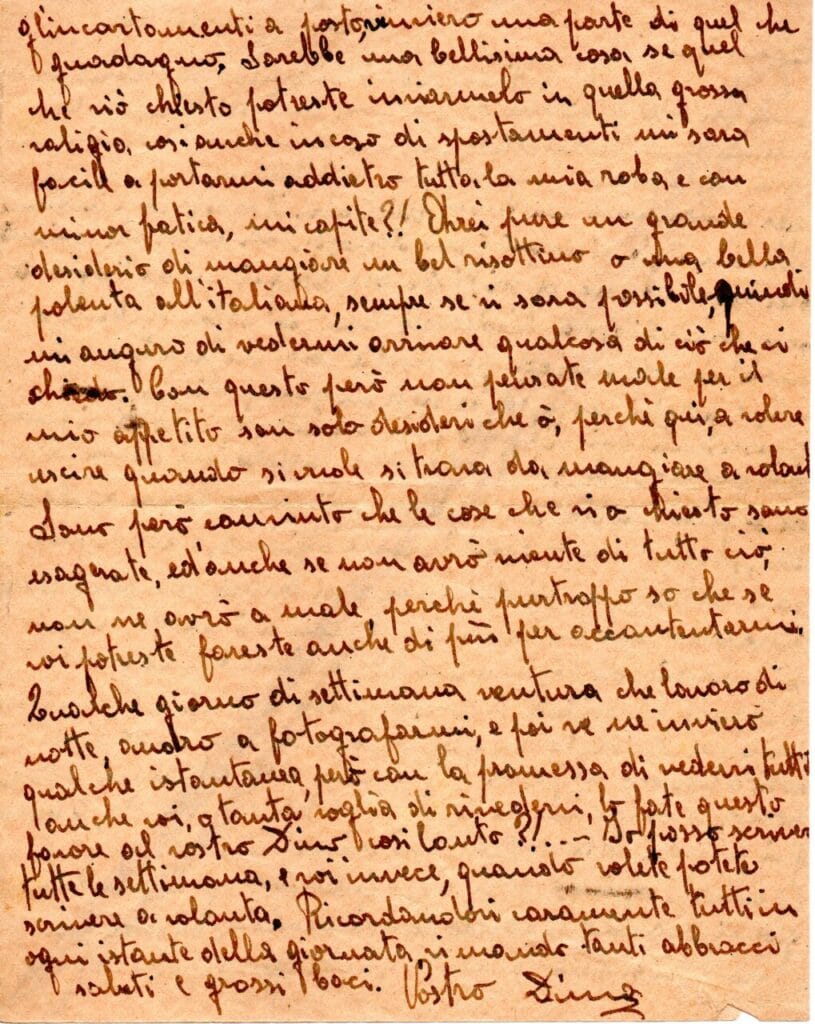 gl'incartamenti a posto, invierò una parte di quel che
guadagno, Sarebbe una bellissima cosa se quel
che viò chiesto potreste inviarmelo in quella grossa
valigia, così anche in caso di spostamenti mi sara
facile a portarmi addietro tutta la mia roba e con
minor fatica, mi capite?! Avrei pure un grande
desiderio di mangiare un bel risottino o una bella
polenta all'italiana, sempre se vi sara possibile, quindi
mi auguro di vedermi arrivare qualcosa di ciò che vi
chiedo. Con questo però non pensate male per il
mio appetito son solo desideri che ò, perchè qui, a volere
uscire quando si vuole si trova da mangiare a volont
Sono però convinto che le cose che vi o chiesto sono
esagerate, ed'anche se non avrò niente di tutto ciò,
non ne avrò a male, perchè purtroppo so che se
voi potreste fareste anche di più per accontentarmi.
Qualche giorno di settimana ventura che lavoro di
notte, andrò a fotografarmi, e poi ve ne invierò
qualche istantanea, però con la promessa di vedervi tutti
anche voi, o tanta voglia di rivedervi, lo fate questo
favore al vostro Dino cosi lonto?!...- Io posso scriver
tutte le settimana, e voi invece, quando volete potete
scrivere a volonta. Ricordandovi caramente tutti in
ogni istante della giornata, vi mando tanti abbracci
saluti e grossi baci. Vostro Dino